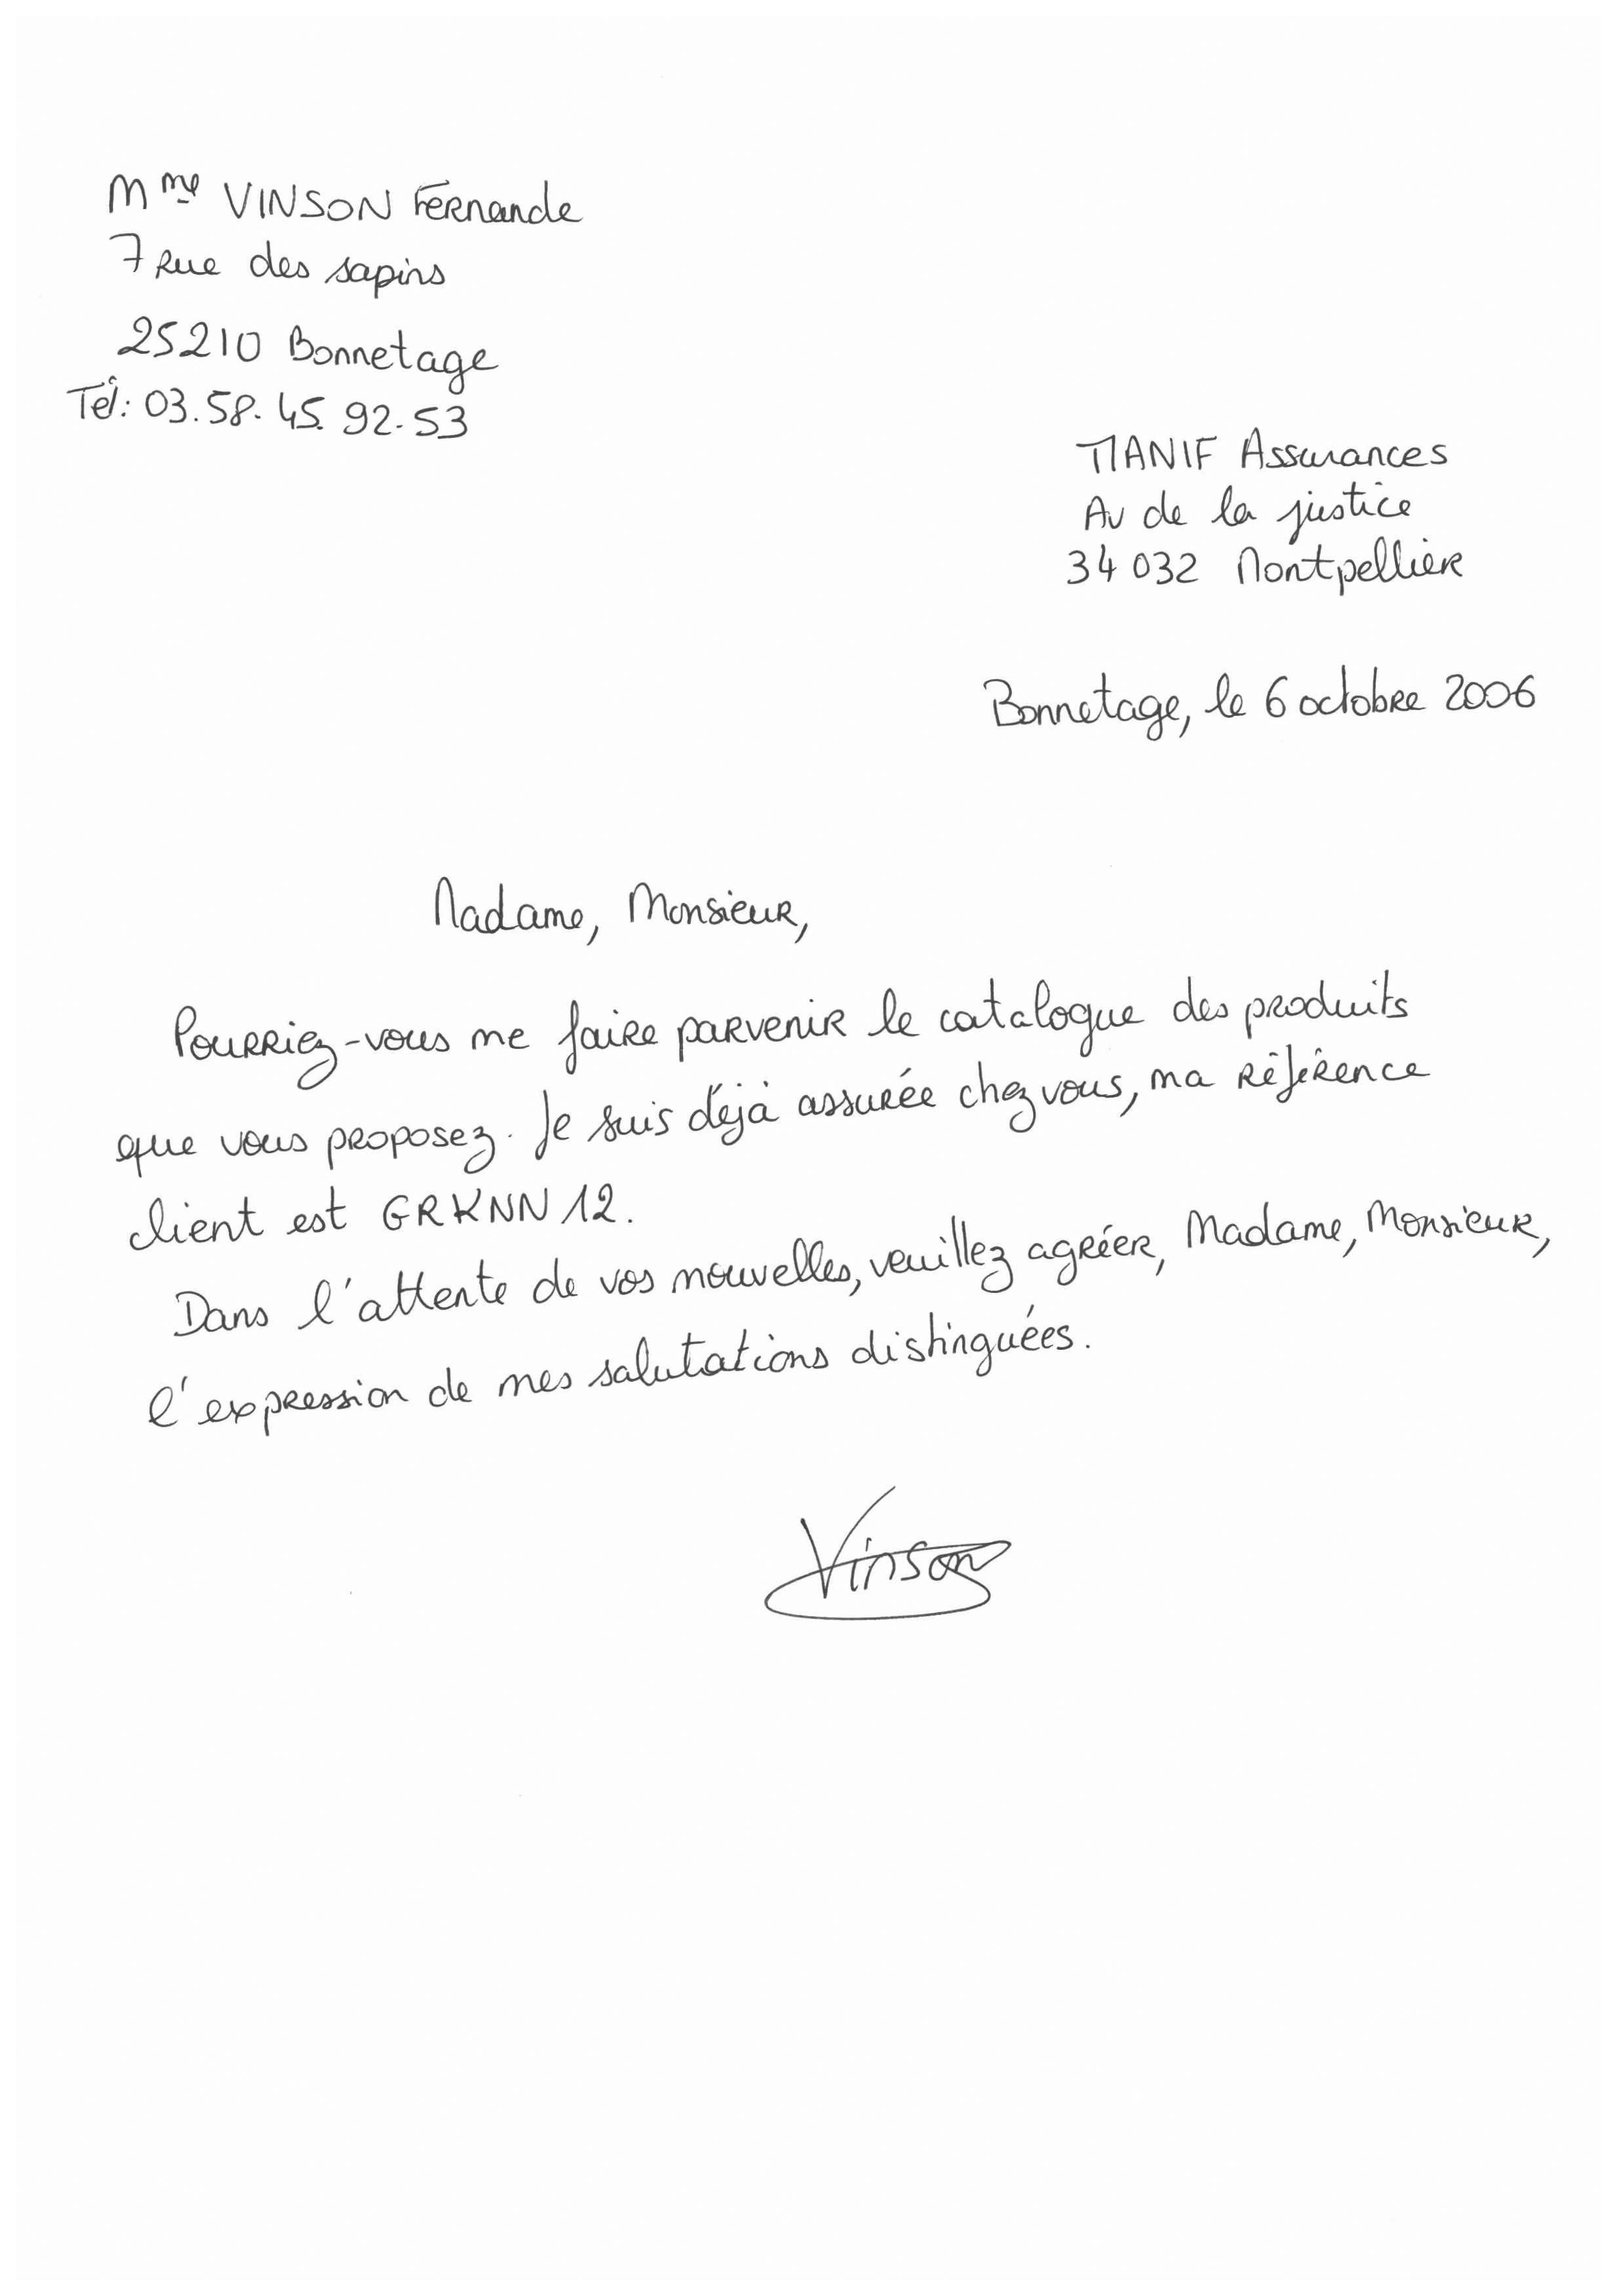 Mme VINSON Fernande
7 Rue des sapins
25210 Bonnetage
Tél: 03.58.45.92.53
MANIF Assurances
Av de la justice
34 032 Montpellier
Bonnetage, le 6 octobre 2006
Madame, Monsieur,
Pourriez-vous me faire parvenir le catalogue des produits
que vous proposez. Je suis déjà assurée chez vous, ma référence
client est GRKNN 12.
Dans l'attente de vos nouvelles, veuillez agréer, Madame, Monsieur,
l'expression de mes salutations distinguées.
Vinson